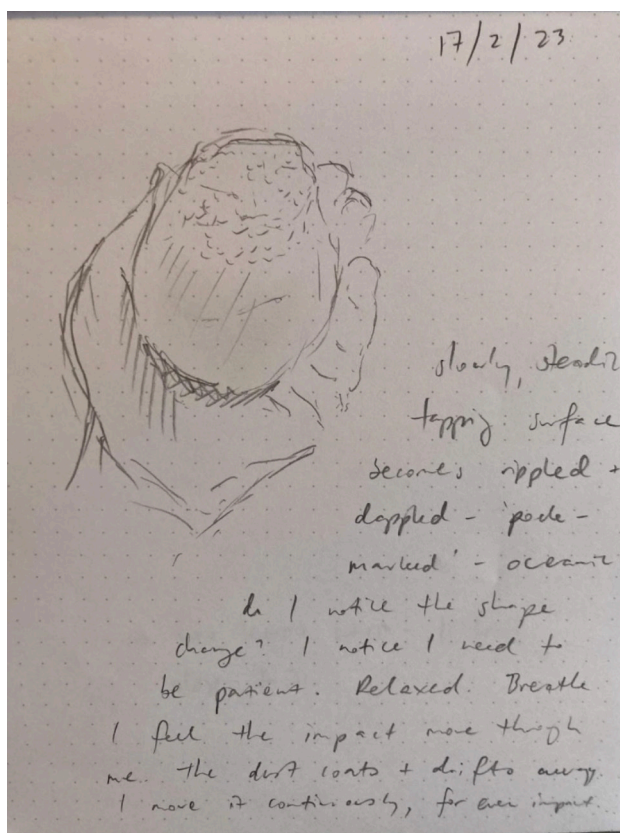 17/2/23
slowly, steadil
tapping surface
becomes rippled +
dappled - 'pock-
marked' - oceanic
do I notice the shape
change? I notice I need to
be patient. Relaxed. Breathe
I feel the impact move through
me. the dust coats + drifts away.
I move it continuously, for even impact.